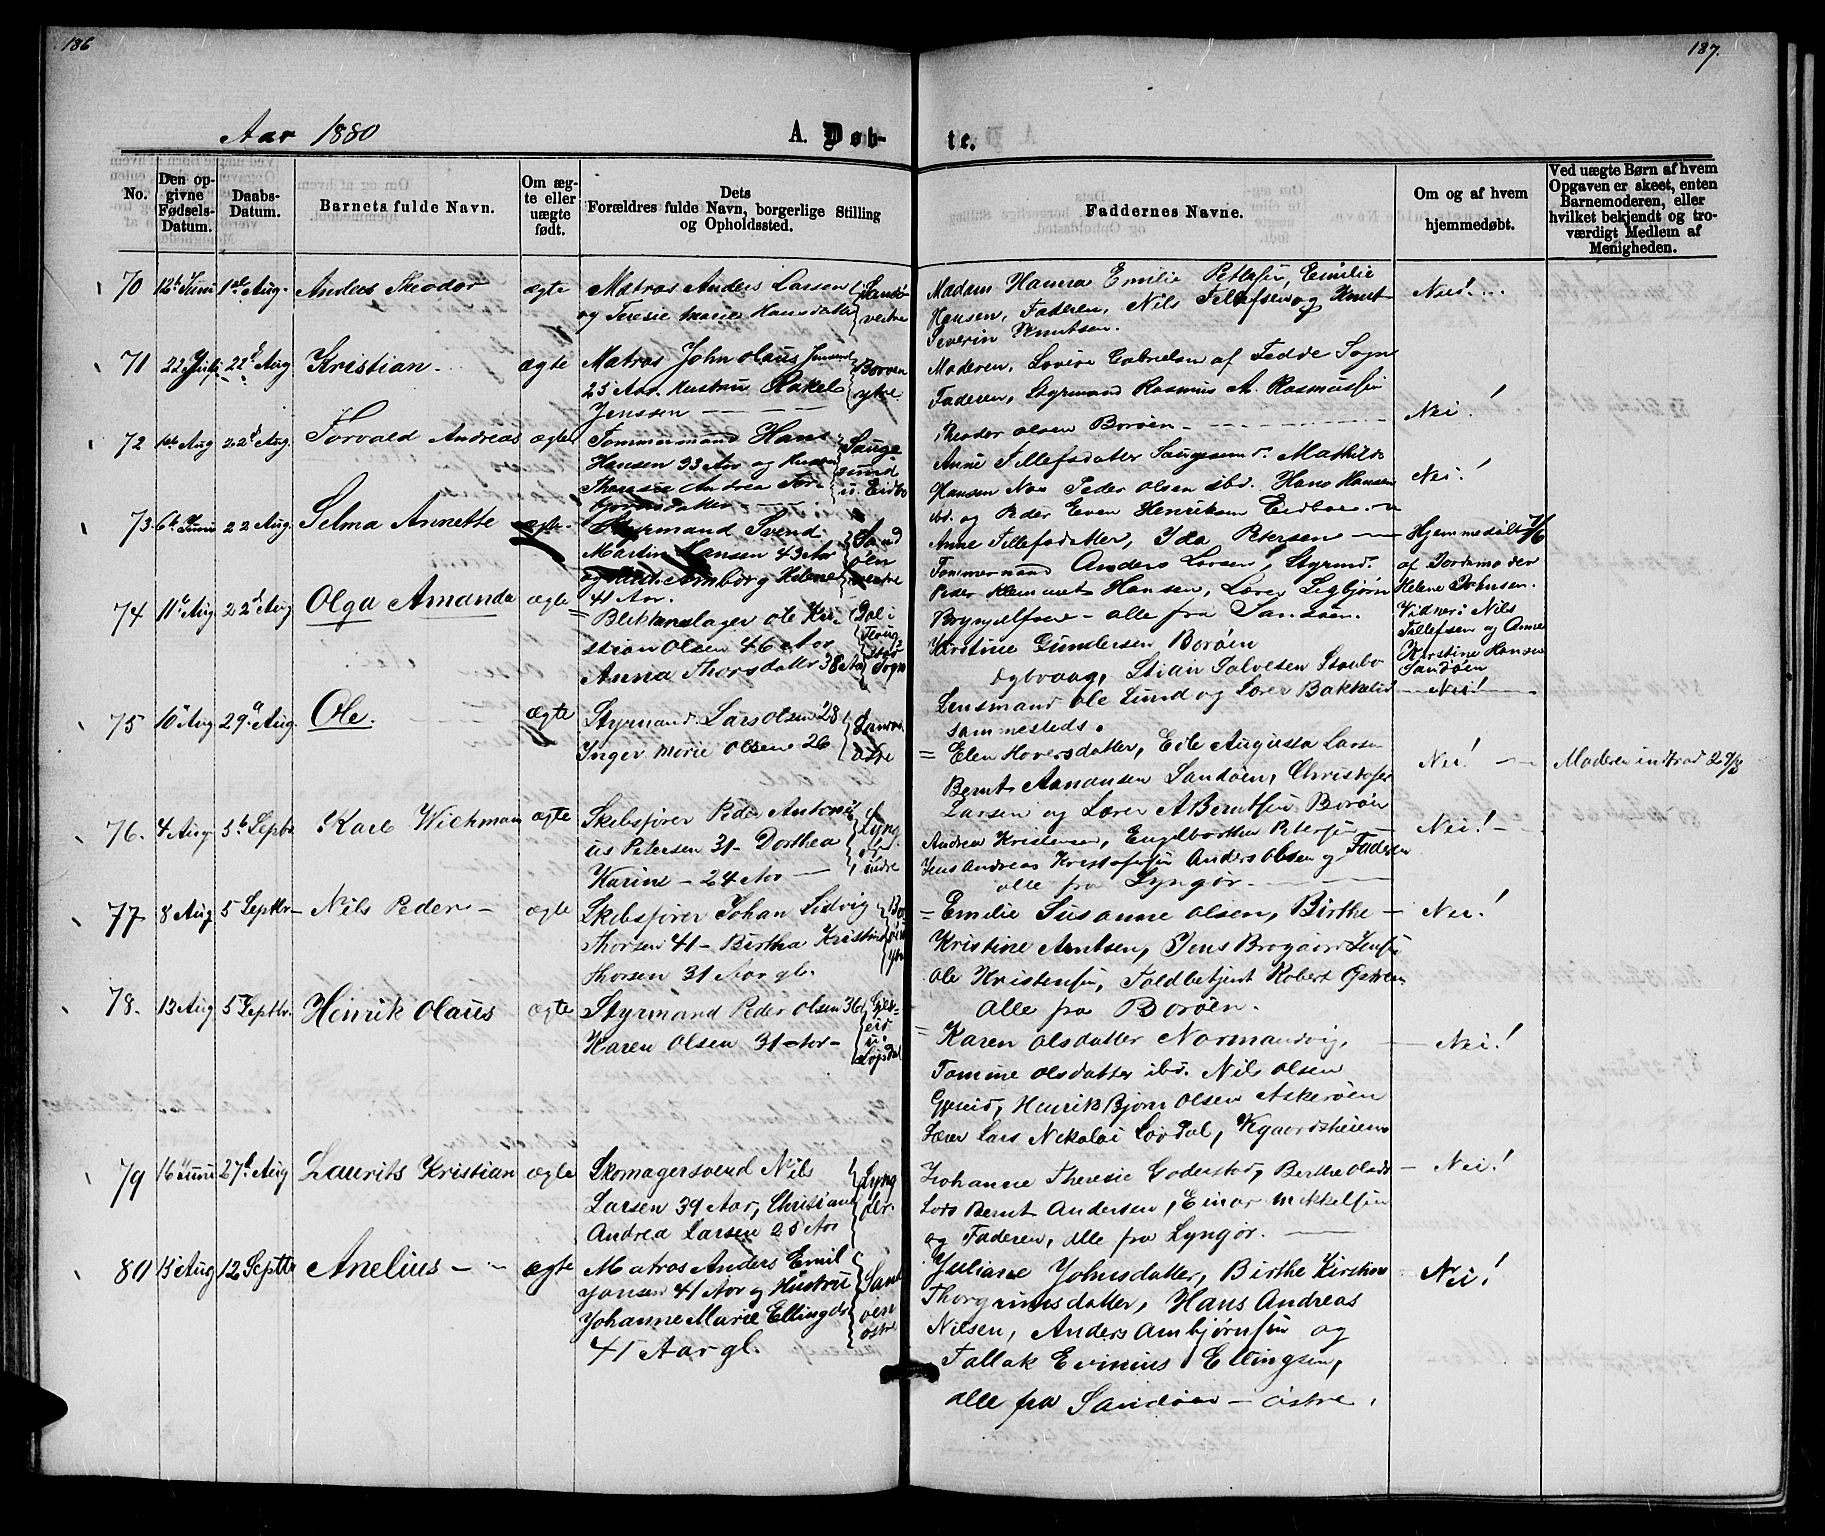 186
187.
Aar 1880
A. Døb-
te.
No.
Den op-
givne
Fødsels-
Datum.
Daabs-
Datum.
Barnets fulde Navn.
Om æg-
te eller
uægte
født.
Dets
Forældres fulde Navn, borgerlige Stilling
og Opholdssted.
Faddernes Navne.
Om og af hvem
hjemmedøbt.
Ved uægte Børn af hvem
Opgaven er skeet, enten
Barnemoderen, eller
hvilket bekjendt og tro-
værdigt Medlem af
Menigheden.
70 12te Juni 1ste Aug. Anders Theodor ægte
Matros Anders Larsen
og Teresie Marie Hansdatter
Sandø
vestre
Madam Hanna Emilie Petersen, Emilie
Hansen, Faderen, Nils Tellefsen og Knut
Severin Knutsen.
Nei!
71 22 Juli 22d Aug Kristian ægte
Matros John Olaus
25 Aar Hustru Rakel
Jenssen
Borøen
ytre
Moderen, Lovise Gabrielsen af Fedde Sogn
Faderen, Styrmand Rasmus A. Rasmussen
Theodor Olsen Borøen
Nei!
72 1ste Aug 22d Aug. Torvald Andreas ægte
Tømmermand Hans
Hansen 33 Aar og Hustru
Theresie Andrea Tor-
bjørnsdatter
Sauge
sund
u. Eidbo
Anne Tellefsdatter Saugesund. Mathilde
Hansen Næs Peder Olsen ibd. Hans Hansen
ibd. og Peder Even Henriksen Eidboe
Nei!
73. 6te Juni 22 Aug. Selma Annette ægte
Styrmand Svend
Martin Larsen 43 Aar
og Hust. Amborg Helene
41 Aar.
Sand
øen
vestre
Anne Tellefsdatter, Ida Petersen
Tømmermand Anders Larsen, Styrmd.
Peder Klemmet Hansen, Lærer Sigbjørn
Brynjelfsen - alle fra Sandøen.
Hjemmedøbt 7/6
af Jordemoder
Helene Johnsen.
Vidner: Nils
Tellefsen og Anne
Kirstine Hansen
Sandøen
74 11te Aug 22d Aug Olga Amanda ægte
Blikkenslager Ole Kri-
stian Olsen 46 Aar
Anna Thorsdatter 38 Aar
Dal i
Flaug
stad
Sogn
Kirstine Gundersen Borøen
Dybvaag, Stian Salvesen Staubo
Lensmand Ole Lund og Lærer Bakkelid
sammesteds.
Nei!
75 10 Aug 29de Aug. Ole. ægte
Styrmand Lars Olsen 28
Inger Marie Olsen 26
Sandøen
østre
Elen Hoversdatter, Edle Augusta Larsen
Bernt Aanansen Sandøen, Christofer
Larsen og Lærer A Berntsen Borøen
Nei!
Moderen indtrad 29/8
76. 4 Aug 5te Septbr Karl Wichman ægte
Skibsfører Peder Antoni
us Petersen 31 - Dorthea
Karine - 24 Aar
Lyng
ør
indre
Andrea Kristensen, Engelborthen Petersen
Jens Andreas Kristofersen Anders Olsen og Faderen
alle fra Lyngør
Nei!
77 8 Aug 5 Septbr Nils Peder ægte
Skibsfører Johan Ludvig
Thorsen 41 - Birtha Kristine
Thorsen 31 Aar gl.
Bor
øen
ytre
Emilie Susanne Olsen, Birthe
Kristine Arntsen, Jens Brogaard Jensen
Ole Kristensen, Toldbetjent Robert
Alle fra Borøen.
Nei!
78. 13 Aug 5 Septbr. Henrik Olaus ægte
Styrmand Peder Olsen 36
Karen Olsen 31 Aar
Gjes-
eid
u.
Løvdal
Karen Olsdatter Normandvig,
Tomine Olsdatter ibd. Nils Olsen
Gjeseid, Henrik Bjørn Olsen Askerøen
Lærer Lars Nikolai Løvdal, Kgaardsheien
Nei!
79 16 Juni 27de Aug Laurits Kristian ægte
Skomagersvend Nils
Larsen 39 Aar, Christiane
Andrea Larsen 25 Aar
Lyng
ør.
Johanne Theresie Godesstad, Berthe Olsdt
Lods Bernt Andersen, Einar Mikkelsen
og Faderen, alle fra Lyngør.
Nei!
80 15 Aug 12 Septbr Anelius ægte
Matros Anders Emil
Jansen 41 Aar og Hustru
Johanne Marie Ellingdr
41 Aar gl.
Sand
øen
østre
Juliane Johnsdatter, Birthe Kirstine
Thorgrimsdatter, Hans Andreas
Nilsen, Anders Ambjørnsen og
Tallak Evinius Ellingsen,
alle fra Sandøen - østre.
Nei!